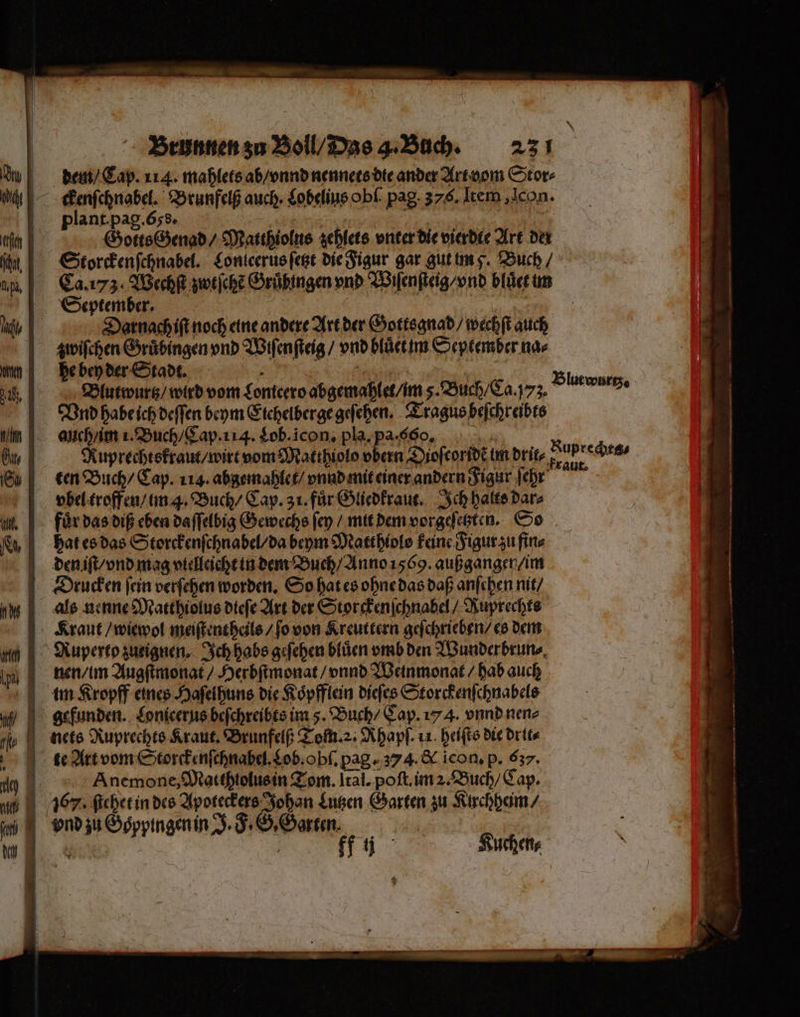 Brunnen zu Boll/Das 4. Buch. 231
dem/Cap. 114. mahlets ab/vnnd nennets die ander Art vom Stor-
ckenſchnabel. Brunfelß auch. Lobelius obſ. pag. 376. Item, Icon.
plant. pag. 658.
Gotts Genad/ Matthiolus zehlets vnter die vierdte Art der
Storckenſchnabel. Lonicerus ſetzt die Figur gar gut im 5. Buch/
Ca. 173. Wechſt zwiſchẽ Grůbingen vnd Wiſenſteig/vnd blůet im
September.
Darnach iſt noch eine andere Art der Gottsgnad/wechſt auch
zwiſchen Grůbingen vnd Wiſenſteig/ vnd blůet im September na-
he bey der Stadt.
Blutwurtz/wird vom Lonicero abgemahlet/im 5. Buch/Ca. 173.
Blutwurtz.
Vnd habe ich deſſen beym Eichelberge geſehen. Tragus beſchreibts
auch/im 1. Buch/Cap. 114. Lob. icon, pla. pa. 660.
Ruprechtskraut/wirt vom Matthiolo vbern Dioſcoridẽ im drit-
Ruprechts-
kraut.
ten Buch/Cap. 114. abgemahlet/vnnd mit einer andern Figur ſehr
vbel troffen/im 4. Buch/ Cap. 31. für Gliedkraut. Ich halts dar-
für das diß eben daſſelbig Gewechs ſey/ mit dem vorgeſetzten. So
hat es das Storckenſchnabel/da beym Matthiolo keine Figur zu fin-
den iſt/vnd mag vielleicht in dem Buch/Anno 1569. außgangen/im
Drucken ſein verſehen worden. So hat es ohne das daß anſehen nit/
als nenne Matthiolus dieſe Art der Storckenſchnabel/ Ruprechts
Kraut/wiewol meiſtentheils/ſo von Kreuttern geſchrieben/es dem
Ruperto zueignen. Ich habs geſehen blůen vmb den Wunderbrun-
nen/im Augſtmonat/ Herbſtmonat/vnnd Weinmonat/ hab auch
im Kropff eines Haſelhuns die Kőpfflein dieſes Storckenſchnabels
gefunden. Lonicerus beſchreibts im 5. Buch/ Cap. 174. vnnd nen-
nets Ruprechts Kraut. Brunfelß Tom. 2. Rhapſ. 11. heiſts die drit-
te Art vom Storckenſchnabel. Lob. obſ. pag. 374. & icon. p. 637.
Anemone, Matthiolus in Tom. Ital. poſt. im 2. Buch/ Cap.
167. ſtehet in des Apoteckers Johan Lutzen Garten zu Kirchheim/
vnd zu Gőppingen in J. F. G. Garten.
ff ij Kuchen-